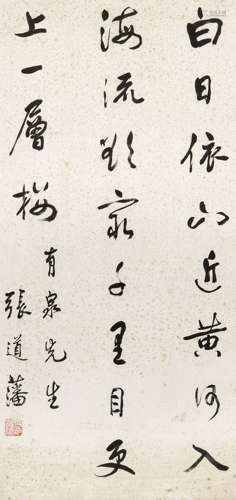 白日依山近黃河入
海流欲窮千里目更
上一層樓
有泉先生
張道藩